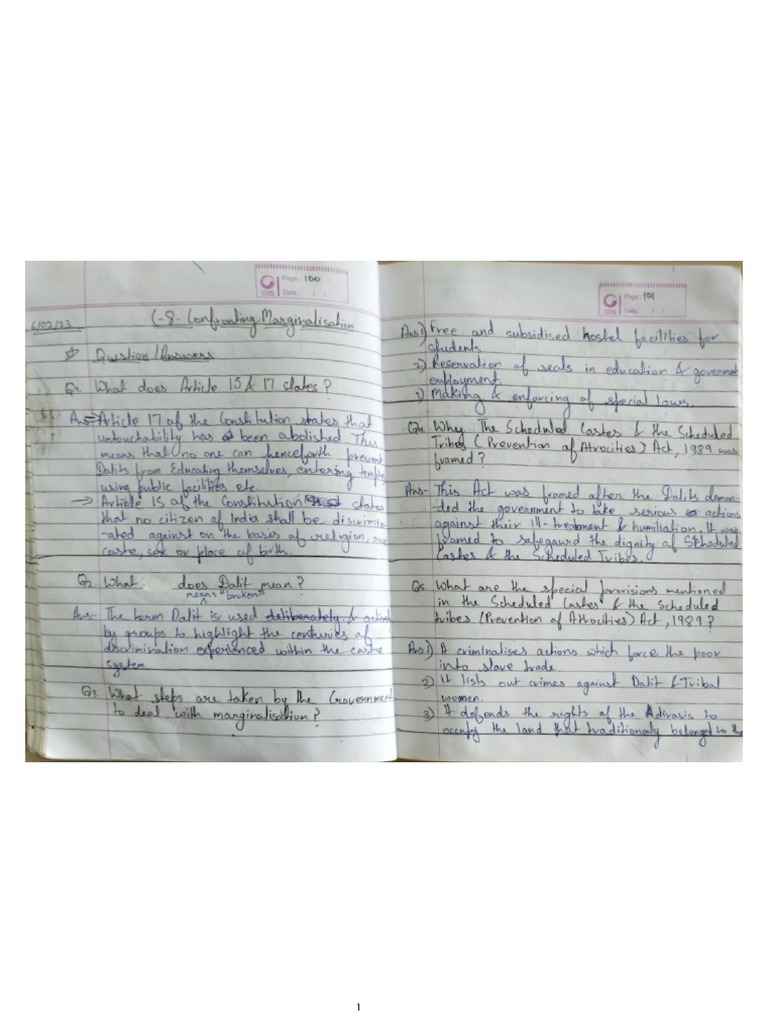 Page: 100
GIIS Date: / /
6/02/23 C-8- Confronting Marginalisation
Question/Answers
Q1 What does Article 15 & 17 states?
Ans → Article 17 of the Constitution states that
untouchability has been abolished This
means that no one can henceforth prevent
Dalits from Educating themselves, entering temple
using public facilities etc.
→ Article 15 of the Constitution states
that no citizen of India shall be discrimin
-ated against on the bases of religion, race
caste, sex or place of birth.
Q2 What does Dalit mean?
means "broken"
Ans- The term Dalit is used deliberately &
by groups to highlight the centuries of
discrimination experienced within the caste
system
Q3 What steps are taken by the Government
to deal with marginalisation?
Page: 101
GIIS Date: / /
Ans 1) Free and subsidised hostel facilities for
students
2) Reservation of seats in education & governme
employment.
3) Making & enforcing of special laws.
Q4 Why The Scheduled Castes & the Scheduled
Tribes (Prevention of Atrocities) Act, 1989 was
framed?
Ans- This Act was framed after the Dalits deman-
-ded the government to take serious actions
against their ill-treatment & humiliation. It was
framed to safegaurd the dignity of Scheduled
Castes & the Scheduled Tribes.
Q5 What are the special provisions mentioned
in the Scheduled Castes & the Scheduled
tribes (Prevention of Atrocities) Act, 1989?
Ans 1) It criminalises actions which force the poor
into slave trade.
2) It lists out crimes against Dalit & Tribal
women.
3) It defends the rights of the Adivasis to
occupy the land that traditionaly belonged to the
1